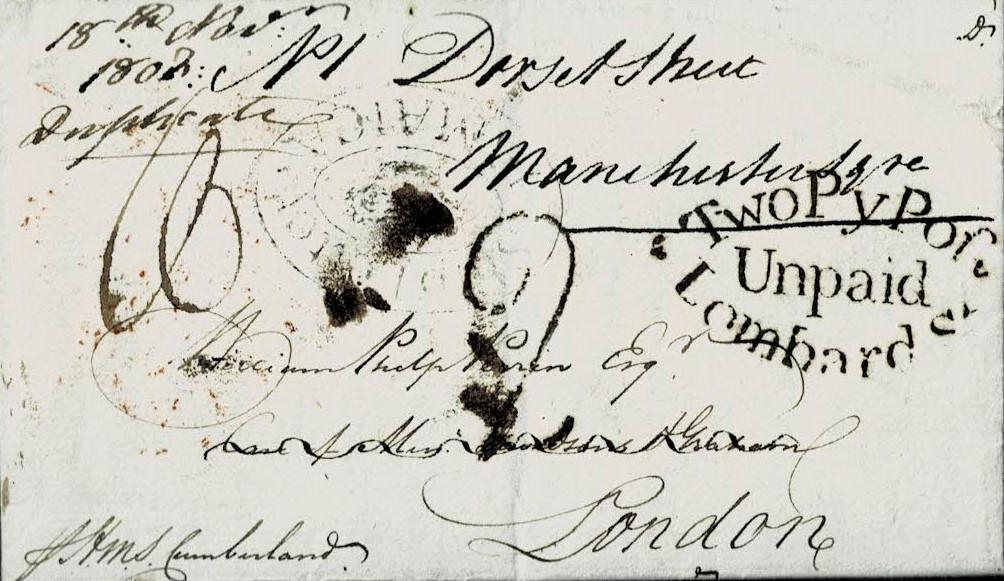 18th Novr:
1808:
Duplicate
No 1 Dorset Street
Manchester Sqre
Two Py Post
Unpaid
Lombard St
William Philp Perrin Esqr
Care of Messrs. & Graham
London
p H.M.S. Cumberland